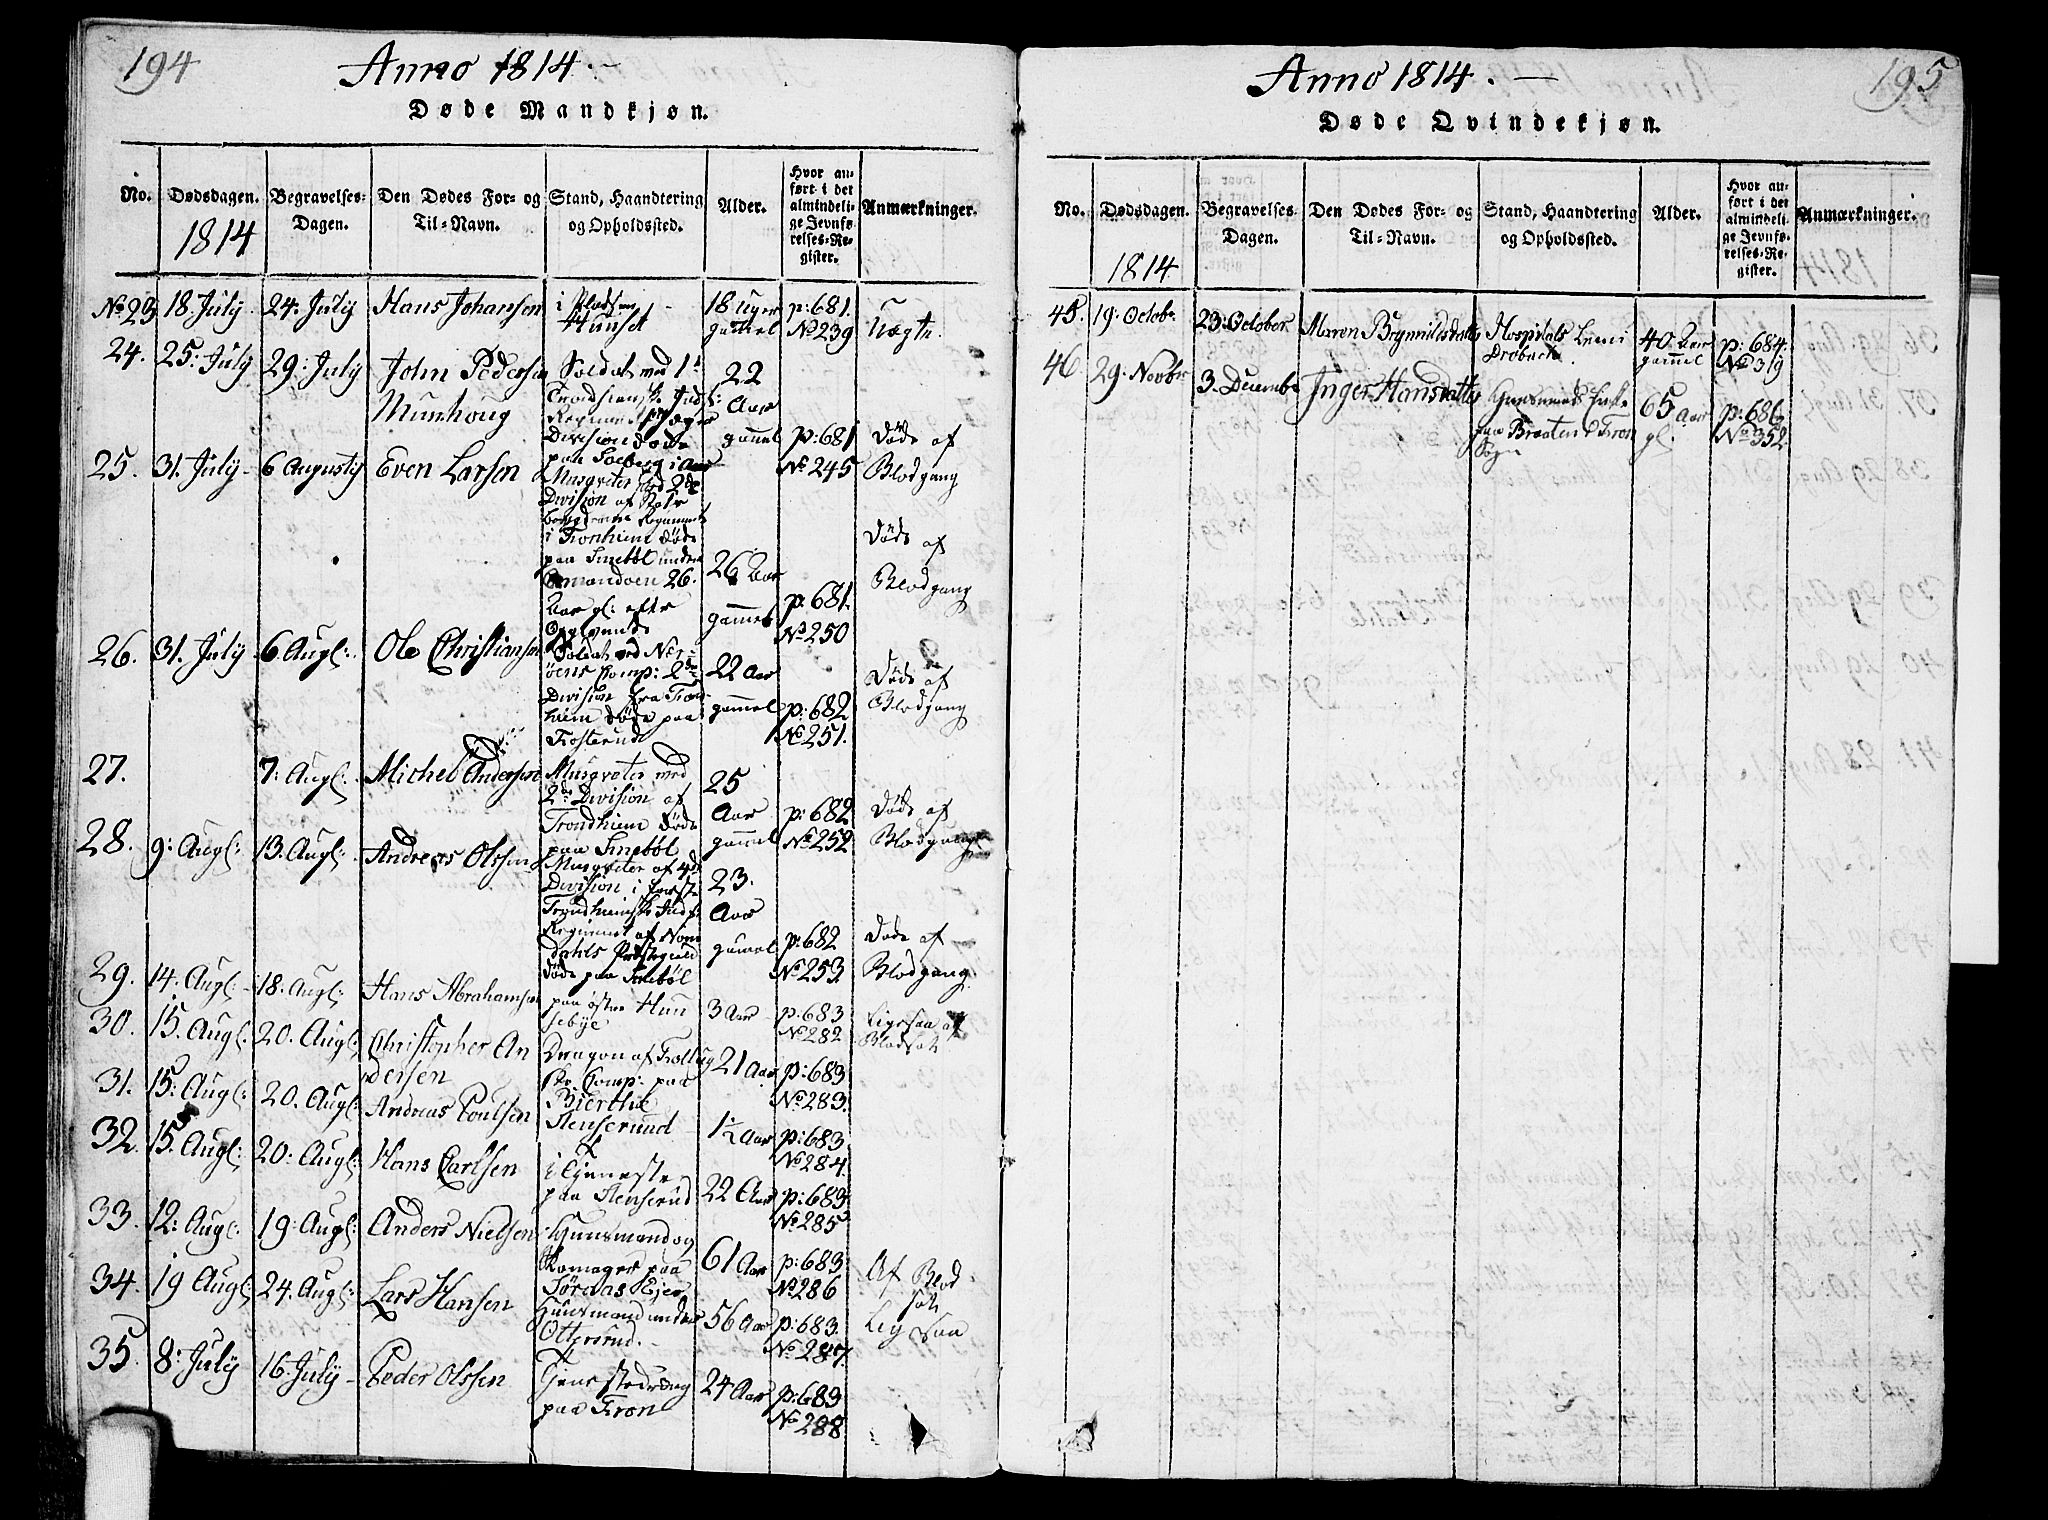 194
Anno 1814.
Døde Mandkjøn.
No. Dødsdagen. 1814
Begravelses-Dagen.
Den Dødes For- og Til-Navn.
Stand, Haandtering og Opholdssted.
Alder.
Hvor anført i det almindelige Jevnførelses-Register.
Anmærkninger.
No 23 18. July 24. July Hans Johansen i Pladsen Hunset 18 uger gammel p: 681. No 239 Uægte.
24. 25. July 29. July John Pedersen Munhoug
Soldat med 1ste
Trondhiemske Inf:
Regiment
Division døde
paa Solberg i
22 Aar gammel p: 681 No 245 Døde af Blodgang
25. 31. July 6 Augusty Even Larsen
Musqveter ved 2de
Division af
Regiment
i Tronhiem døde
paa Smebøl under
26.
Aar gl: efter
Opgivende
26 Aar gammel p: 681. No 250 Døde af Blodgang
26. 31. July 6. Augl: Ole Christiansen
Soldat ved Nær-
öens Comp: 2den
Division fra Trond-
hiem døde paa
Frosterud
22 Aar gammel p: 682 No 251. Døde af Blodgang
27. 7. Augl: Michel Andersen
Musqveter med
2den Division af
Trondhiem døde
paa Smebøl
25 Aar gammel p: 682 No 252 Døde af Blodgang
28. 9: Augl: 13. Augl: Andreas Olssen
Musqveter af 4de
Division i første
Trondhiemske Inf:
Regiment af Nom
dahls Præstegield
døde paa Smebøl
23. Aar gammel p: 682 No 253. Døde af Blodgang.
29. 14. Augl: 18. Augl: Hans Abrahamsen paa östre Hun sebÿe 3 Aar p: 683 No 282 Ligesaa af Blodsot
30. 15. Augl: 20. Augl: Christopher An dersen Dragon af Follug ske Comp: paa Bierthe 21 Aar p: 683 No 283.
31. 15: Augl: 20. Augl: Andreas Poulsen Stenserund 1½ Aar p: 683 No 284.
32. 15. Augl: 20: Augl: Hans Carlsen i Tjeneste paa Stenserud 22 Aar p: 683. No 285
33. 12: Augl: 19: Augl: Anders Nielsen Huusmand og Skomager paa Tøraas Ejer 61 Aar p: 683 No 286 Af Blod sot
34. 19 Augl: 24. Augl: Lars Hansen Huusmand under Ottersrud. 56 Aar p: 683. No 287. Lig saa
35. 8: July 16. July Peder Olssen Tjenestedreng paa Fron 24 Aar p: 683 No 288
195
Anno 1814.
Døde Qvindekjøn.
No. Dødsdagen. 1814
Begravelses-Dagen.
Den Dødes For- og Til-Navn.
Stand, Haandtering og Opholdssted.
Alder.
Hvor anført i det almindelige Jevnførelses-Register.
Anmærkninger.
45. 19. Octobr. 23. October Maren Brynnildsdatter Hospitals Lem i Drobach. 40 Aar gammel p: 684 No 319
46 29. Novbr. 3. December Inger Hansdatter Huusmands Enke paa Braaten Fron Sogn 65 Aar gl. p: 686 No 352